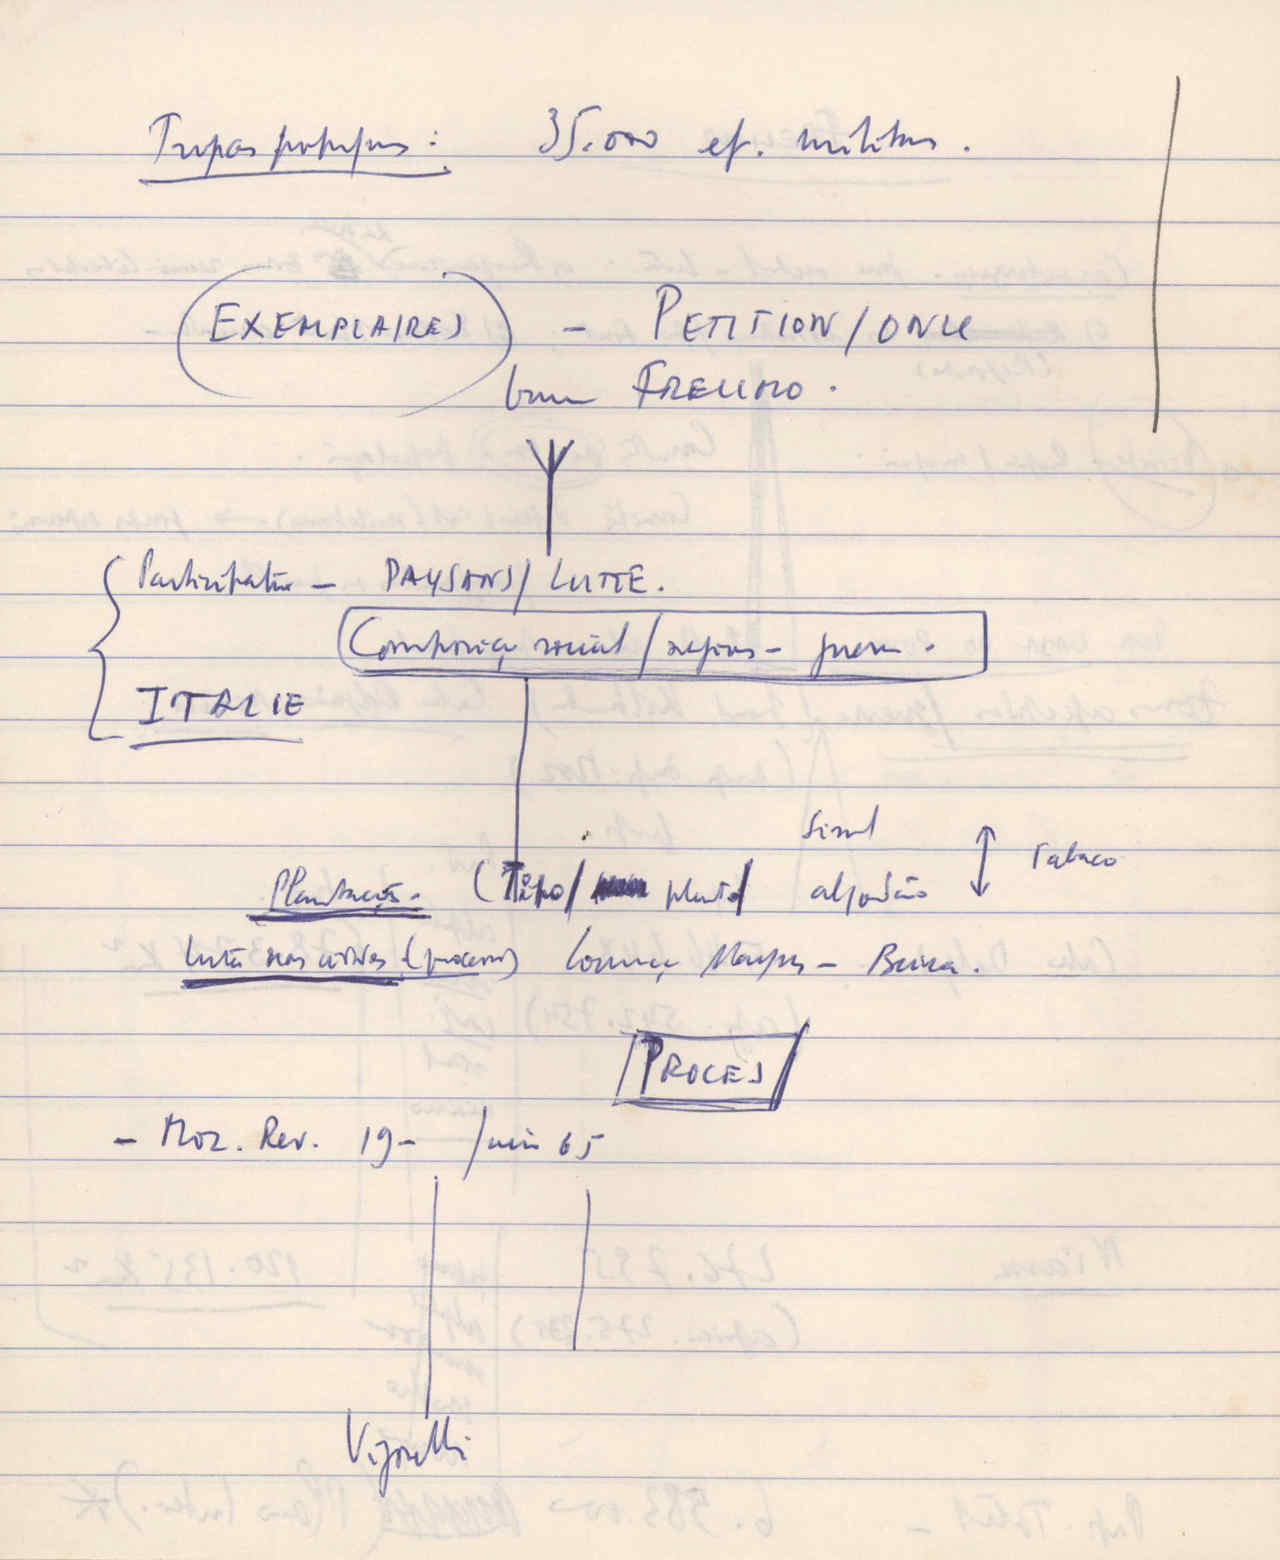 Tropas portugus: 35.000 ef. militares.
EXEMPLAIRES - PETITION/ONU
FRELIMO.
Participation - PAYSANS/LUTTE.
Composiç social/regions - guerra.
ITALIE
Sisal
Plantação. (Tipo/ planta/ algodão Tabaco
Luta nas cidades (processo) Lourenço Marques - Beira.
PROCES
- Moz. Rev. 19- Juin 65
Vigorelli